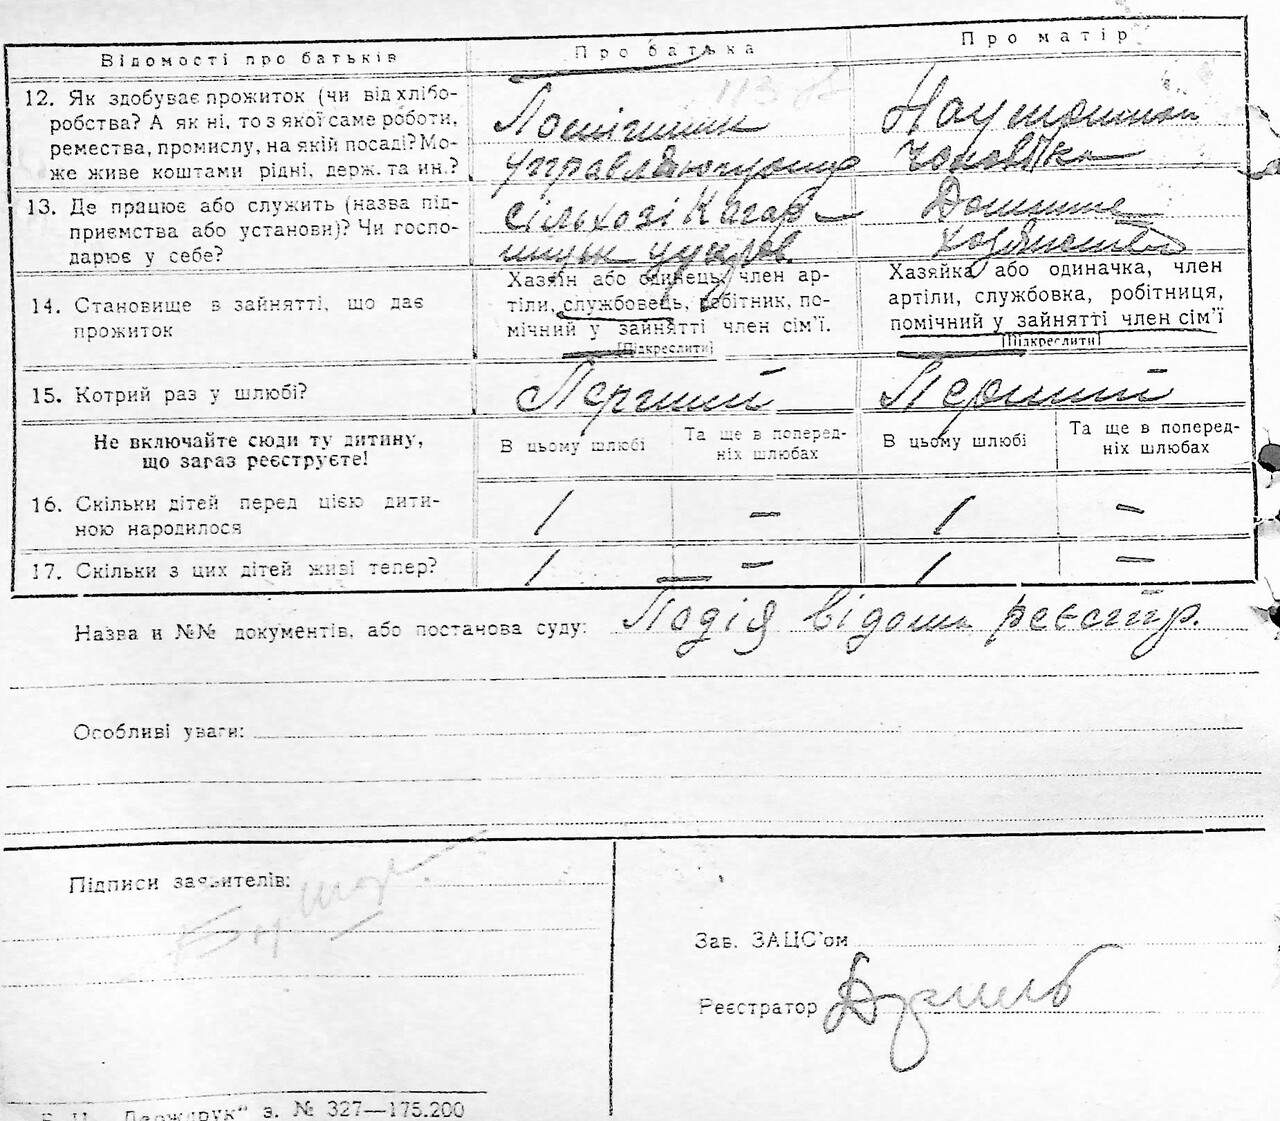 Відомості про батьків
Про батька
Про матір
12. Як здобуває прожиток (чи від хлібо-
робства? А як ні, то з якої саме роботи,
ремества, промислу, на якій посаді? Мо-
же живе коштами рідні, держ. та ин.?
Помічник
На утриманні
чоловіка
13. Де працює або служить (назва під-
приємства або установи)? Чи госпо-
дарює у себе?
сільхозі Кагар-
Домашне
хозяйство
14. Становище в зайнятті, що дає
прожиток
Хазяїн або одинець, член ар-
тіли, службовець, робітник, по-
мічний у зайнятті член сім'ї.
[Підкреслити]
Хазяйка або одиначка, член
артіли, службовка, робітниця,
помічний у зайнятті член сім'ї
[Підкреслити]
15. Котрий раз у шлюбі?
Перший
Перший
Не включайте сюди ту дитину,
що зараз реєструєте!
В цьому шлюбі
Та ще в поперед-
ніх шлюбах
В цьому шлюбі
Та ще в поперед-
ніх шлюбах
16. Скільки дітей перед цією дити-
ною народилося
1 – 1 –
17. Скільки з цих дітей живі тепер?
1 – 1 –
Назва и №№ документів, або постанова суду: Подія відома реєстр.
Особливі уваги:
Підписи заявителів:
Зав. ЗАЦС'ом
Реєстратор
"Держдрук" з. № 327—175.200